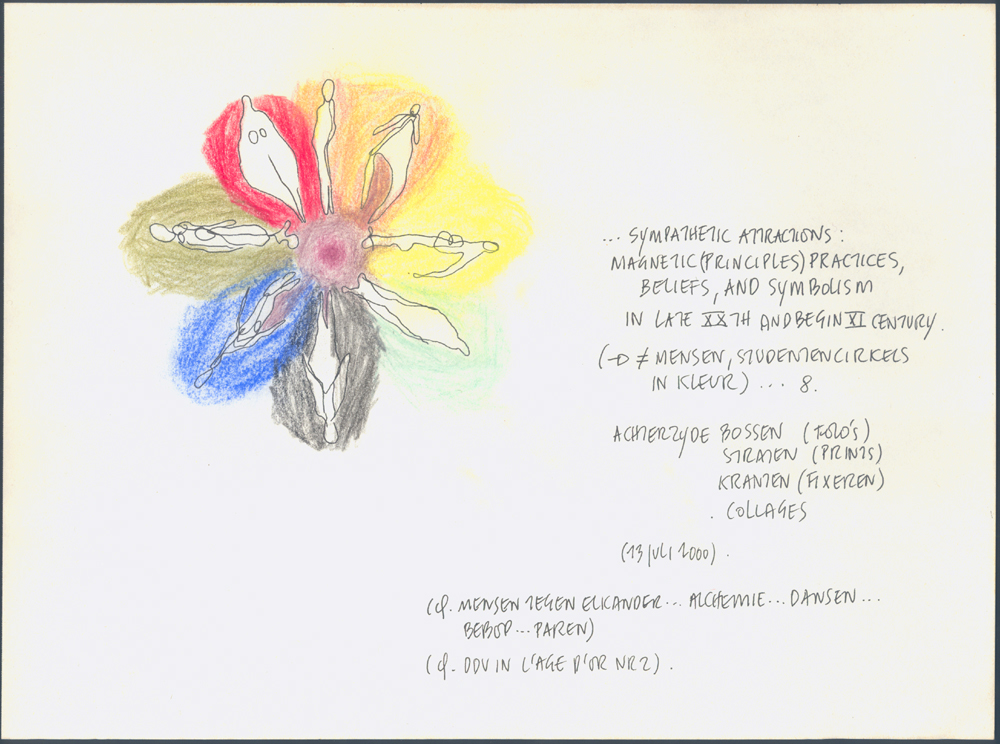 ... SYMPATHETIC ATTRACTIONS :
MAGNETIC (PRINCIPLES) PRACTICES,
BELIEFS, AND SYMBOLISM
IN LATE XXTH AND BEGIN XI CENTURY.
(→ ≠ MENSEN, STUDENTENCIRKELS
IN KLEUR) ... 8.
ACHTERZYDE BOSSEN (FOTO'S)
STRATEN (PRINTS)
KRANTEN (FIXEREN)
. COLLAGES
(13 JULI 2000) .
(cf. MENSEN TEGEN ELKANDER ... ALCHEMIE ... DANSEN ...
BEBOP ... PAREN)
(cf. DDV IN L'AGE D'OR NR 2) .